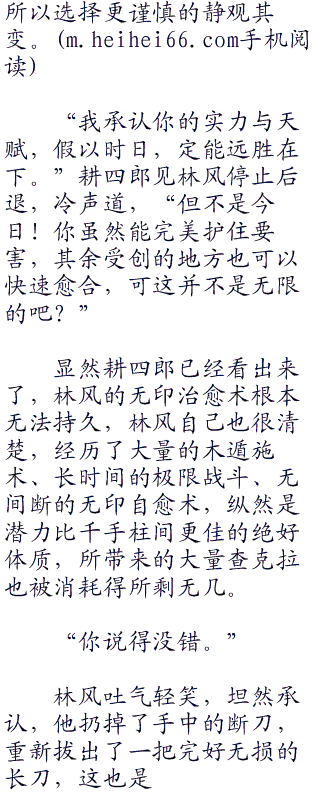 所以选择更谨慎的静观其
变。(m.heihei66.com手机阅
读)
“我承认你的实力与天
赋，假以时日，定能远胜在
下。”耕四郎见林风停止后
退，冷声道，“但不是今
日！你虽然能完美护住要
害，其余受创的地方也可以
快速愈合，可这并不是无限
的吧？”
显然耕四郎已经看出来
了，林风的无印治愈术根本
无法持久，林风自己也很清
楚，经历了大量的木遁施
术、长时间的极限战斗、无
间断的无印自愈术，纵然是
潜力比千手柱间更佳的绝好
体质，所带来的大量查克拉
也被消耗得所剩无几。
“你说得没错。”
林风吐气轻笑，坦然承
认，他扔掉了手中的断刀，
重新拔出了一把完好无损的
长刀，这也是